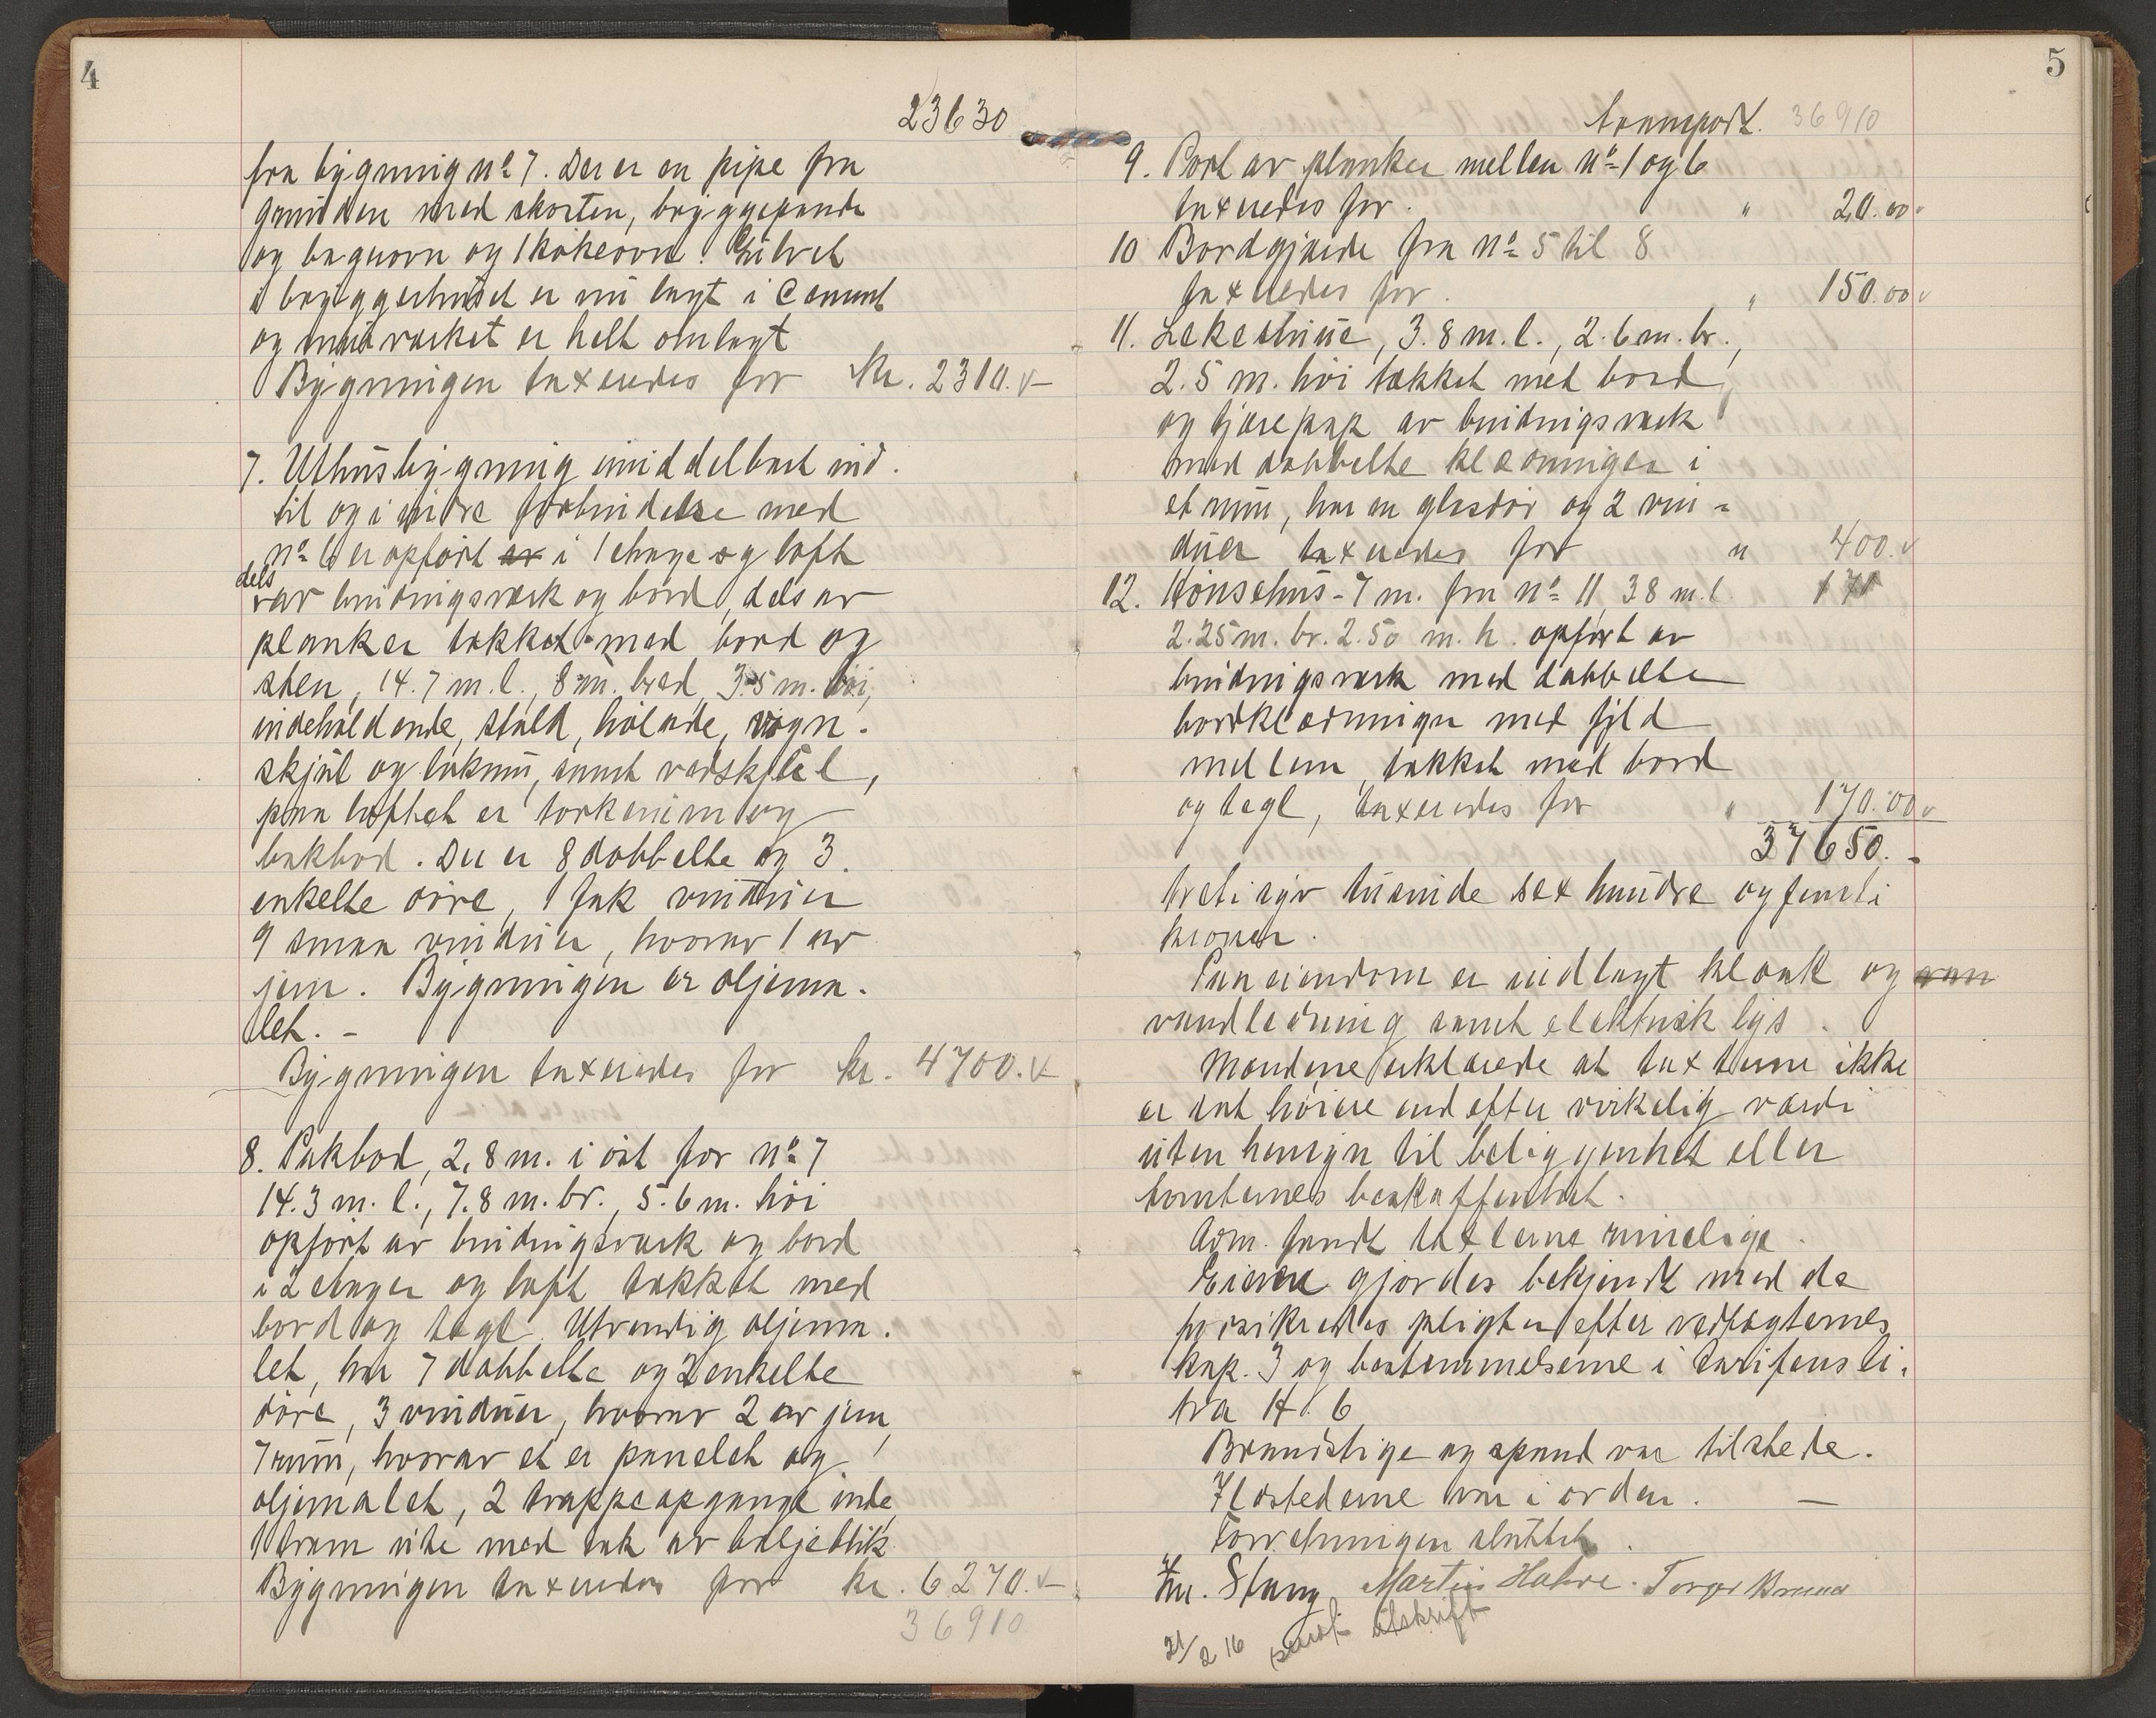 4
23630
fra bygning nº 7. Der er en pipe fra
grunden med skorten, bryggepande
og bagerovn og 1 kokeovn. Gulvet
i bryggerhuset er nu lagt i Cement
og murverket er helt omlagt
Bygningen taxeredes for kr. 2310.-
7. Uthusbygning umiddelbart ind-
til og i indre forbindelse med
nº 6 er opført av i 1 etage og loft
dels
av bindingsverk og bord, dels av
planker tækket med bord og
sten, 14.7 m. l., 8 m. bred, 3.5 m. høi,
indeholdende, stald, hølade, vogn-
skjul og lokum, samt vedskjul,
paa loftet er tørkerum og
bakbod. Der er 8 dobbelte og 3
enkelte døre, 1 fak vinduer
9 smaa vinduer, hvorav 1 av
jern. Bygningen er oljema-
let. -
Bygningen taxeredes for kr. 4700.-
8. Pakbod, 2,8 m. i øst for nº 7
14.3 m. l., 7.8 m. br., 5.6 m. høi
opført av bindingsverk og bord
i 2 etager og loft tækket med
bord og tagl. Utvendig oljema-
let, har 7 dobbelte og 2 enkelte
døre, 3 vinduer, hvorav 2 av jern,
7 rum, hvorav et er panelet og
oljemalet, 2 trappeopgange inde,
1 tram ute med tak av bøljeblik
Bygningen taxeredes for kr. 6270.-
36910
5
transport. 36910
9. Port av planker mellem nº 1 og 6
taxeredes for " 20.00
10 Bordgjærde fra nº 5 til 8
taxeredes for " 150.00
11. Lekestue, 3.8 m. l., 2.6 m. br.,
2.5 m. høi tækket med bord
og tjærepap av bindingsverk
med dobbelte klædninger i
et rum, har en glasdør og 2 vin-
duer taxeredes for " 400.
12. Hønsehus - 7 m. fra nº 11, 3 8 m. l 170
2.25 m. br. 2.50 m. h. opført av
bindingsverk med dobbelte
bordklædninger med fyld
mellem, tækket med bord
og tagl, taxeredes for " 170.00
37650.-
treti syv tusende sex hundre og femti
kroner.
Paa eiendom er indlagt kloak og van
vandledning samt elektrisk lys.
Mændene erklærede at taxterne ikke
er sat høiere end efter virkelig værdi
uten hensyn til beliggenhet eller
tomternes beskaffenhet.
Adm. fandt taxterne rimelige.
Eieren gjordes bekjendt med de
forsikredes pligter efter vedtægternes
kap. 3 og bestemmelserne i tarifens li-
tra H. 6
Brandstige og spand var tilstede.
Ildstederne var i orden. —
Forretningen sluttet.
Stang Martin Halvre. Torger
21/2 16 sendt utskrift